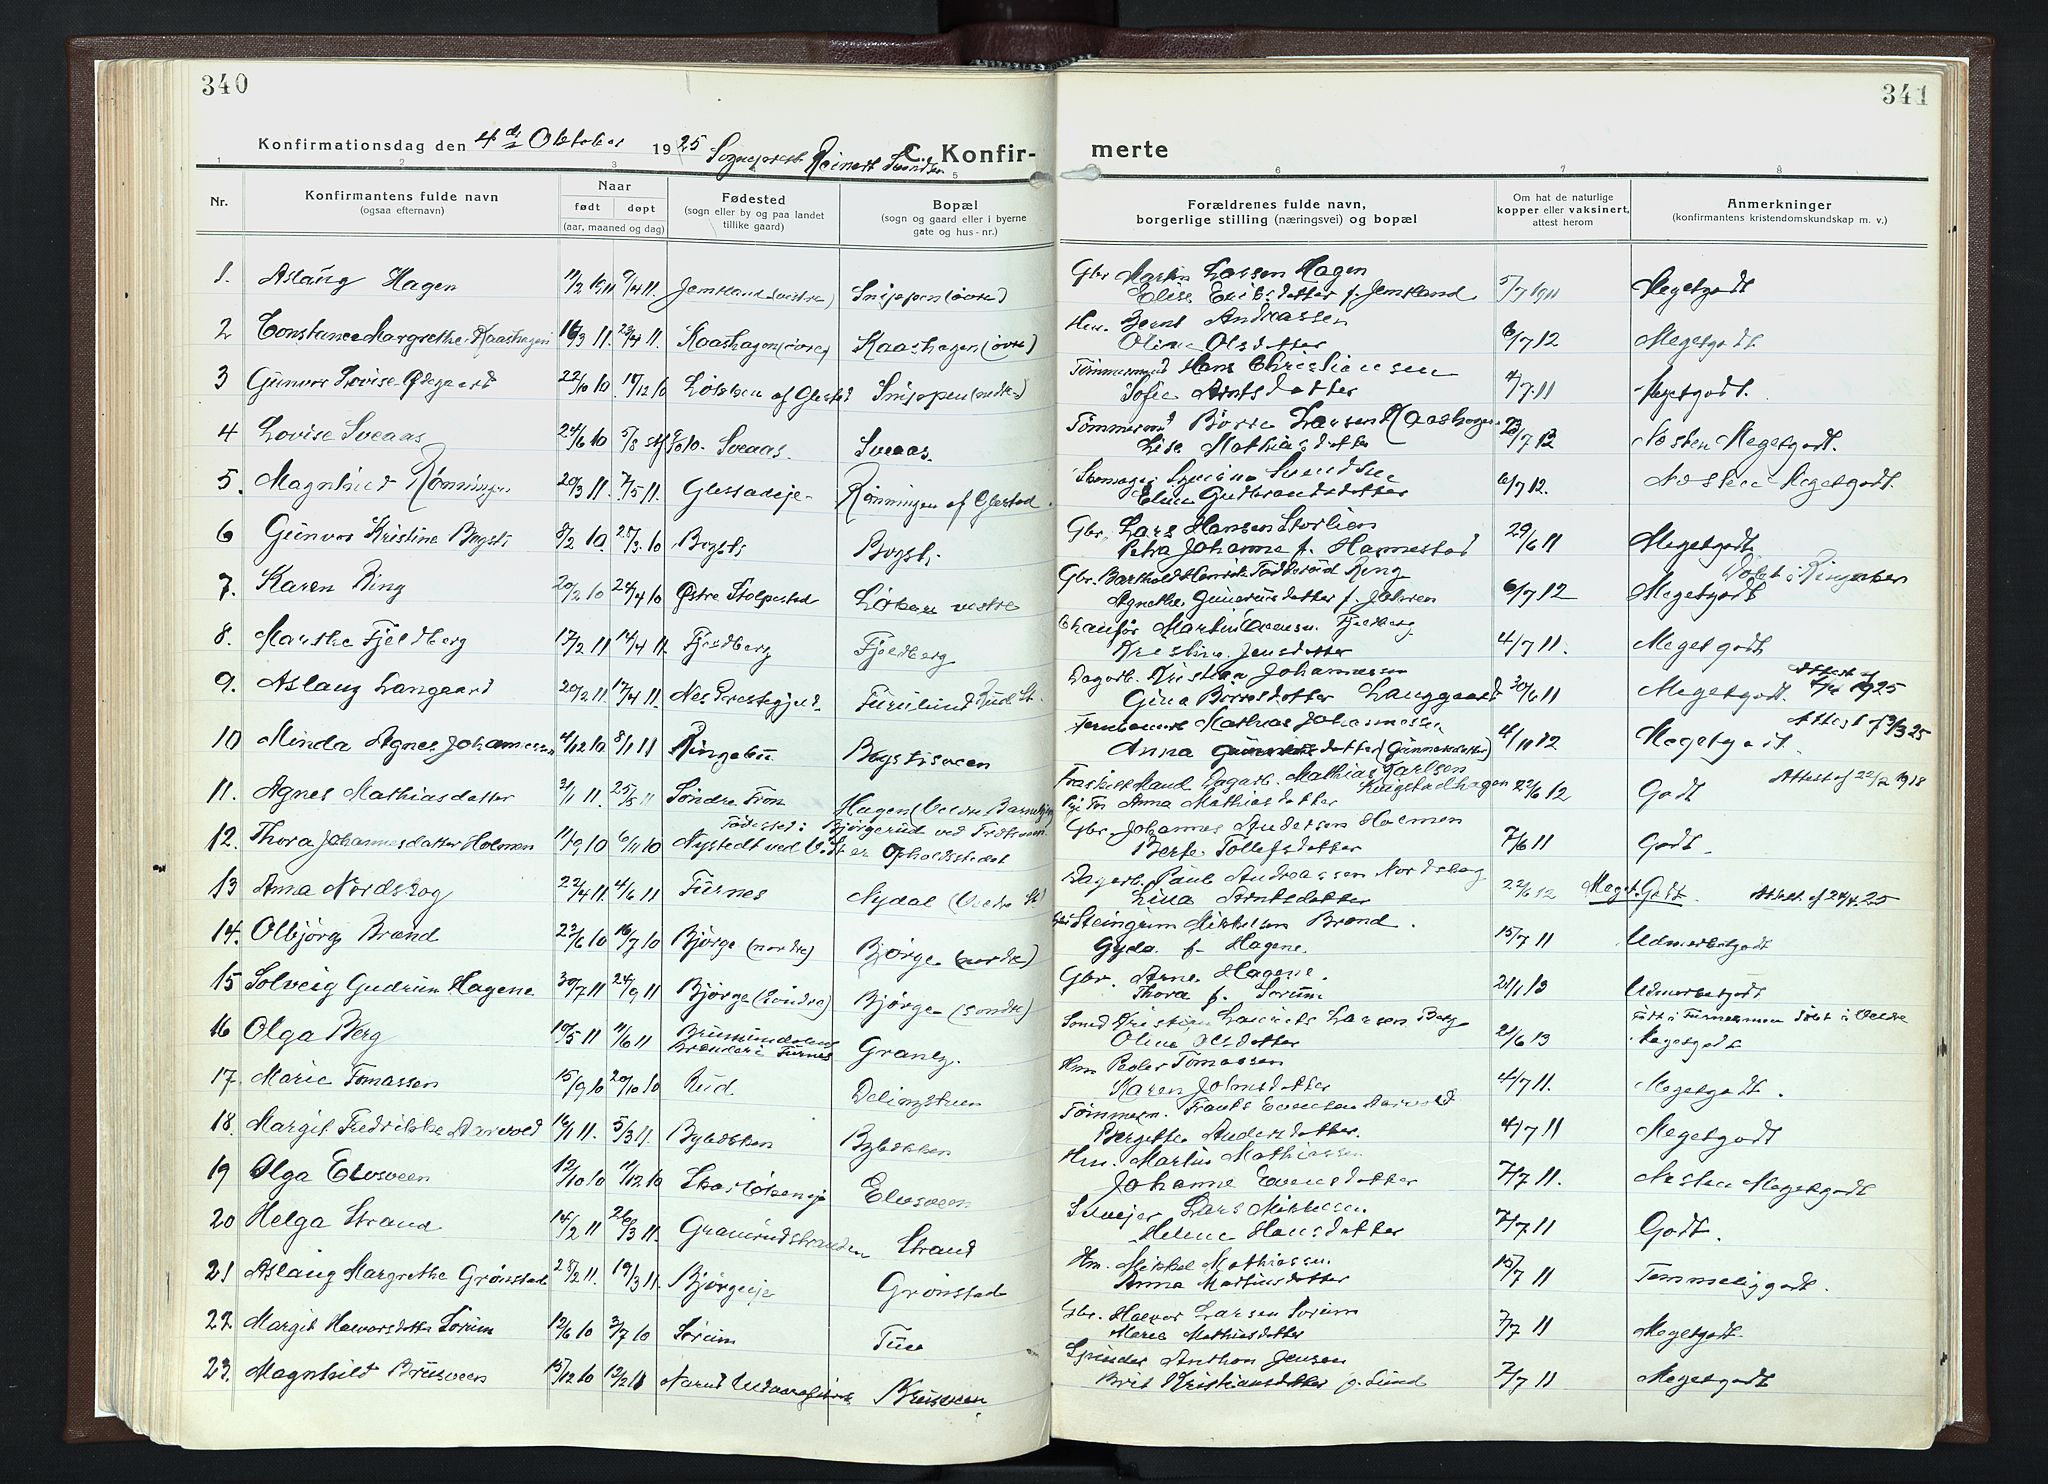 340
341
Konfirmationsdag den 4de Oktober 1925 Sogneprest Reinert Svendsen
C. Konfir-
merte
1 2 3 5 6 7 8
Nr.
Konfirmantens fulde navn
(ogsaa efternavn)
Naar
født døpt
(aar, maaned og dag)
Fødested
(sogn eller by og paa landet
tillike gaard)
Bopæl
(sogn og gaard eller i byerne
gate og hus-nr.)
Forældrenes fulde navn,
borgerlige stilling (næringsvei) og bopæl
Om hat de naturlige
kopper eller vaksinert,
attest herom
Anmerkninger
(konfirmantens kristendomskundskap m. v.)
1. Aslaug Hagen 11/2 1911 9/4 11. Jemtland (vestre) Snippen (øvre) Gbr. Martin Larsen Hagen 5/7 1911 Megetgodt
Elise Eriksdatter f. Jemtland
2 Constance Margrethe Kaashagen 16/3 11. 23/4 11. Kaashagen (øvre) Kaashagen (øvre) Hm. Bernt Andreassen 6/7 12 Megetgodt
Oline Olsdatter
3 Gunvor Lovise Ødegaard 22/10 10 18/12 10 Løkken af Glestad Snippen (nedre) Tømmermand Hans Christiansen 4/7. 11 Megetgodt.
Sofie Arntsdatter
4 Lovise Sveaas 24/6 10 5/8 Sveaas. Sveaas. Tømmerm. Børre Larsen Kaashagen /7 12 Næsten Megetgodt.
Lise Mathiasdatter
5. Magnhild Rønningen 20/3 11. 7/5 11. Glestadeje Rønningen af Glestad. Svendsen 6/7 12. Næsten Megetgodt.
Eline Gudbrandsdatter
6 Gunvor Kristine Bogsti 8/2 10. 28/3. 10 Bogsti Bogsti Gbr. Lars Hansen Storlien 29/6 11 Megetgodt.
Petra Johanne f. Hamnestad
7. Karen Ring 20/2 10 24/4 10 Østre Stolpestad Løken vestre Gbr. Barthold Henrik Ring 6/7 12 Megetgodt Døbt i Ringsaker
Agnethe Gunerusdatter f. Jahren
8. Marthe Fjeldberg 17/2 11 14/4 11. Fjeldberg Fjeldberg Chauffør Martin Evensen Fjeldberg 4/7 11. Meget godt
Kristine Jensdatter
9. Aslaug Langaard 20/2 11. 17/4 11. Nes Prestegjeld Furulund Rud St. Dagarb. Kristian Johannessen 30/6 11 Megetgodt. Attest af 1925
Gina Børresdatter Langgaard
10 Minda Agnes Johannessen 4/12 10 8/1 11 Ringebu Bogstisveen Mathias Johannessen 4/11 12 Megetgodt. Attest af /3 25
Anna Gunnersdatter (Gunnersdatter)
11. Agnes Mathiasdatter 31/1 11. 25/5 11 Søndre Fron Hagen (Veldre Barnehjem) Fraskilt Mand Dagarb. Mathias Karlsen Ringstadhagen 22/6 12 Godt Attest af 22/2 1918
Anna Mathiasdatter
12. Thora Johannesdatter Holmen 11/9 10 6/11 10 Fødested: Bjørgerud ved Fredheim. Nystedt ved V. St. er Opholdsstedet Gbr. Johannes Andersen Holmen 7/6 11 Godt.
Berte Tollefsdatter
13 Anna Nordskog 22/4 11. 4/6 11 Furnes Nydal (Veldre St.) Dagarb. Paul Andreassen Nordskog 22/6 12 Meget Godt. Attest af 24/4. 25
Lina Arntsdatter
14. Olbjørg Brænd 23/6 10 16/7 10 Bjørge (nordre) Bjørge (nordre) Gbr. Steingrim Mikkelsen Brænd. 15/7 11 Udmerketgodt
Gyda f. Hagene.
15 Solveig Gudrun Hagene 30/7 11 24/9 11 Bjørge (søndre) Bjørge (søndre) Gbr. Arne Hagene. 21/1 13 Udmerketgodt
Thora f. Sørum
16 Olga Berg 10/5 11 11/6 11 Brumunddalens Brænderi Furnes Granly. Smed Kristian Laurits Larsen Berg 21/6 13 Født i Furnes men døbt i Veldre Megetgodt
Oline Olsdatter
17. Marie Tomassen 15/9 10 20/10 10 Rud. Delingstuen Hm Peder Tomassen 4/7 11. Megetgodt.
Karen Johnsdatter
18. Margit Fredrikke Aarvold 16/1 11. 5/3 11. Byløkken Byløkken Tømmerm. Frants Evensen Aarvold 4/7 11 Megetgodt
Bergitte Andersdatter.
19 Olga Elvsveen 12/10 10 11/12 10 Elvsveen Hm. Martin Mathiassen 7/7 11. Næsten Megetgodt
Johanne Evensdatter
20 Helga Strand 14/2 11 26/3 11. Granrudstranden Strand Selvejer Lars Mikkelsen 7/7 11 Godt.
Helene Hansdatter
21 Aslaug Margrethe Grønstad 28/2 11. 19/3 11. Bjørgeeje Grønstad Hm. Mikkel Mathiassen 15/7 11 Temmelig godt.
Anna Martinsdatter
22. Margit Halvorsdatter Sørum 12/6 10 3/7 10 Sørum Tue Gbr. Halvor Larsen Sørum 7/7 11 Megetgodt
Marie Mathiasdatter
23. Magnhild Brusveen 15/12 10 12/2 11 Narud Brusveen Anthon Jensen 7/7 11 Megetgodt
Brit Kristiansdatter f. Lund